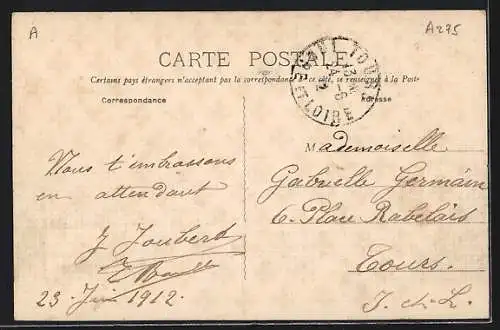 A
A275
CARTE POSTALE
Certains pays étrangers n'acceptant pas la correspondance de ce côté, se renseigner à la Poste
Correspondance
Adresse
TOURS
24 -6
12
ET LOIRE
Nous t'embrassons
en attendant
J Joubert
23 Juin 1912.
Mademoiselle
Gabrielle Germain
6. Place Rabelais
Tours.
I. & L.